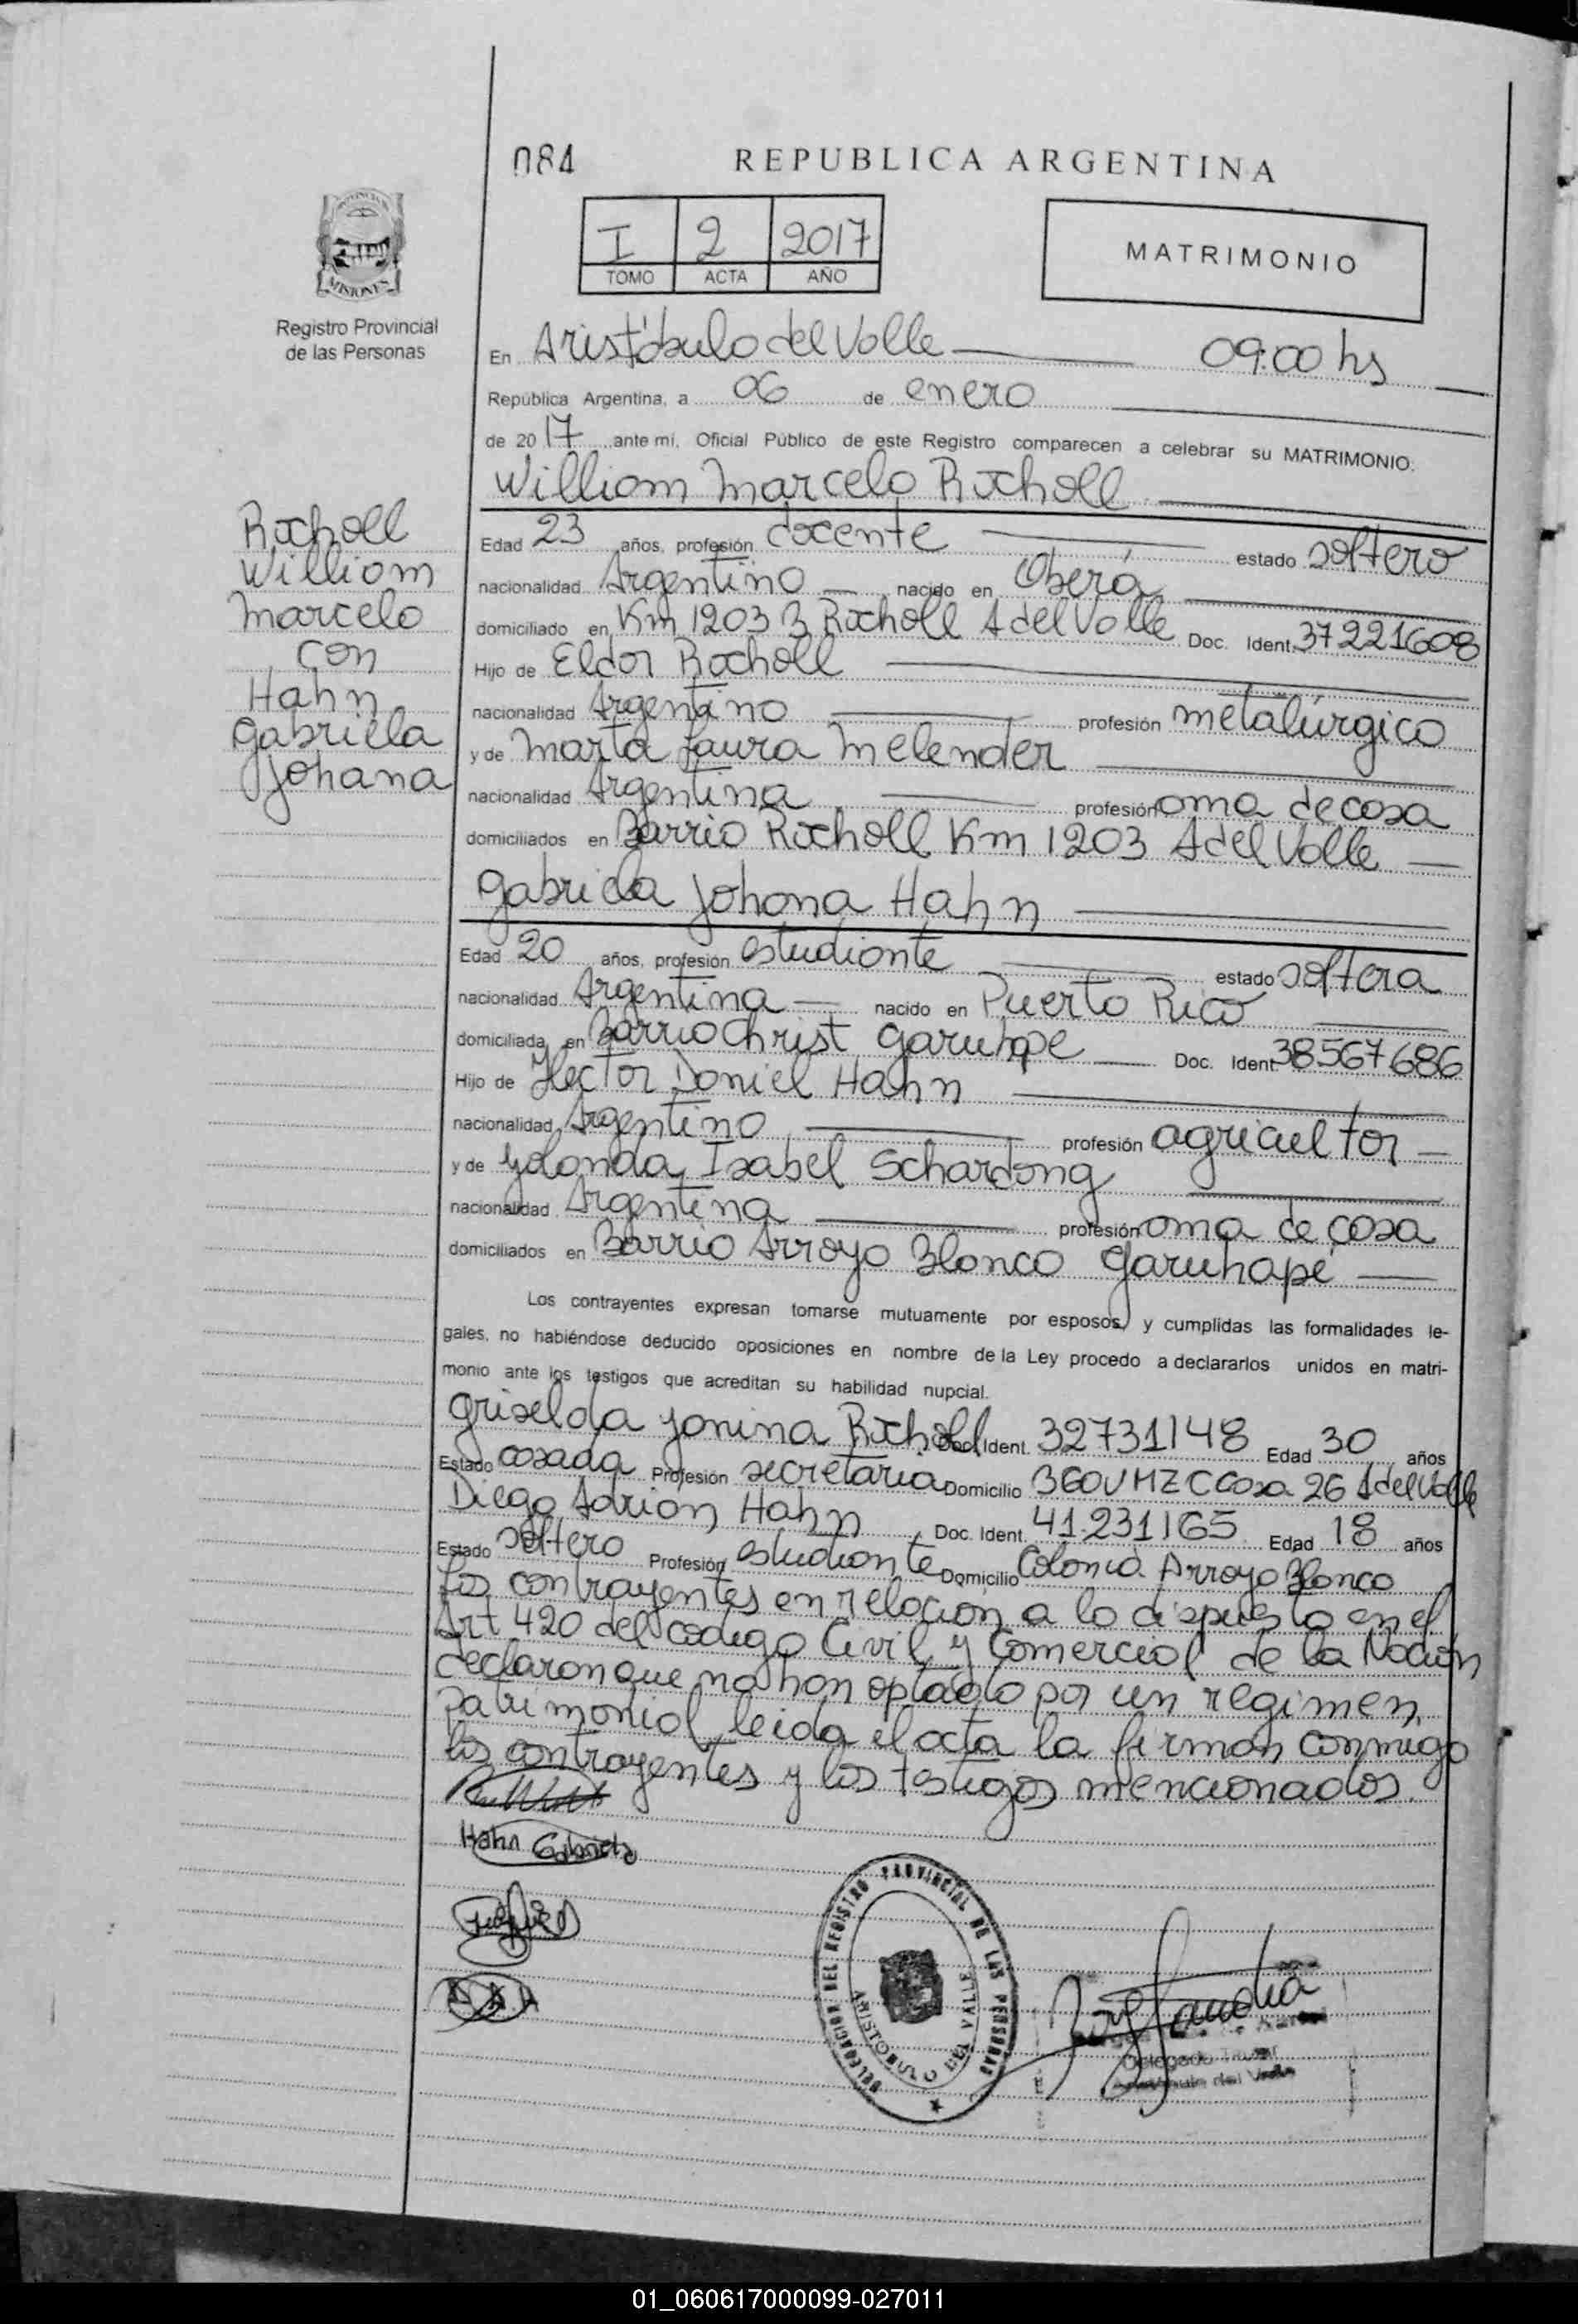 084
REPUBLICA ARGENTINA
I 2 2017
TOMO ACTA AÑO
MATRIMONIO
MISIONES
Registro Provincial
de las Personas
En Aristóbulo del Valle 09:00 hs
República Argentina, a 06 de enero
de 2017 ante mí, Oficial Público de este Registro comparecen a celebrar su MATRIMONIO:
William Marcelo Rocholl
Rocholl
William
Marcelo
con
Hahn
Gabriela
Johana
Edad 23 años, profesión docente estado soltero
nacionalidad Argentino nacido en Oberá
domiciliado en Km 1203 B Rocholl A del Valle Doc. Ident. 37221608
Hijo de Eldor Rocholl
nacionalidad Argentino profesión metalúrgico
y de Marta Laura Melender
nacionalidad Argentina profesión ama de casa
domiciliados en Barrio Rocholl Km 1203 A del Valle
Gabriela Johana Hahn
Edad 20 años, profesión estudiante estado soltera
nacionalidad Argentina nacido en Puerto Rico
domiciliada en Barrio Christ Garuhape Doc. Ident 38567686
Hijo de Hector Daniel Hahn
nacionalidad Argentino profesión agricultor
y de Yolanda Isabel Schardong
nacionalidad Argentina profesión ama de casa
domiciliados en Barrio Arroyo Blanco Garuhapé
Los contrayentes expresan tomarse mutuamente por esposos, y cumplidas las formalidades le-
gales, no habiéndose deducido oposiciones en nombre de la Ley procedo a declararlos unidos en matri-
monio ante los testigos que acreditan su habilidad nupcial.
Griselda Yanina Rocholl Doc. Ident. 32731148 Edad 30 años
Estado casada Profesión secretaria Domicilio 360V MZ C Casa 26 A del Valle
Diego Adrian Hahn Doc. Ident. 41.231165 Edad 18 años
Estado soltero Profesión estudiante Domicilio Colonia Arroyo Blanco
Los contrayentes en relación a lo dispuesto en el
Art 420 del codigo Civil y Comercial de la Nación
declaran que no han optado por un regimen
patrimonial, leida el acta la firman conmigo
los contrayentes y los testigos mencionados.
Hahn Gabriela
DELEGACION DEL REGISTRO PROVINCIAL DE LAS PERSONAS
ARISTOBULO DEL VALLE
Delegado Titular
Aristóbulo del Valle
01_060617000099-027011